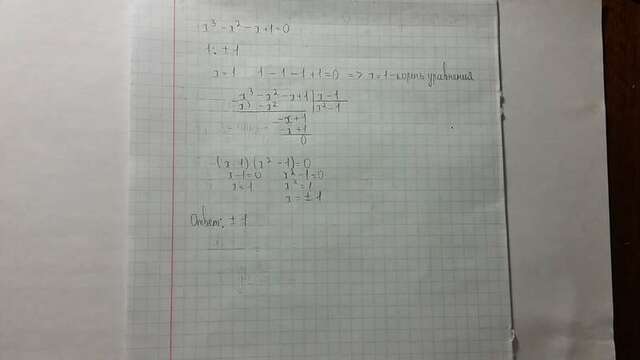 x³ - x² - x + 1 = 0
1: ± 1
x = 1 1 - 1 - 1 + 1 = 0 => x = 1 - корень уравнения
x³ - x² - x + 1 | x - 1
x³ - x² | x² - 1
- x + 1
- x + 1
0
(x - 1)(x² - 1) = 0
x - 1 = 0 x² - 1 = 0
x = 1 x² = 1
x = ± 1
Ответ: ± 1